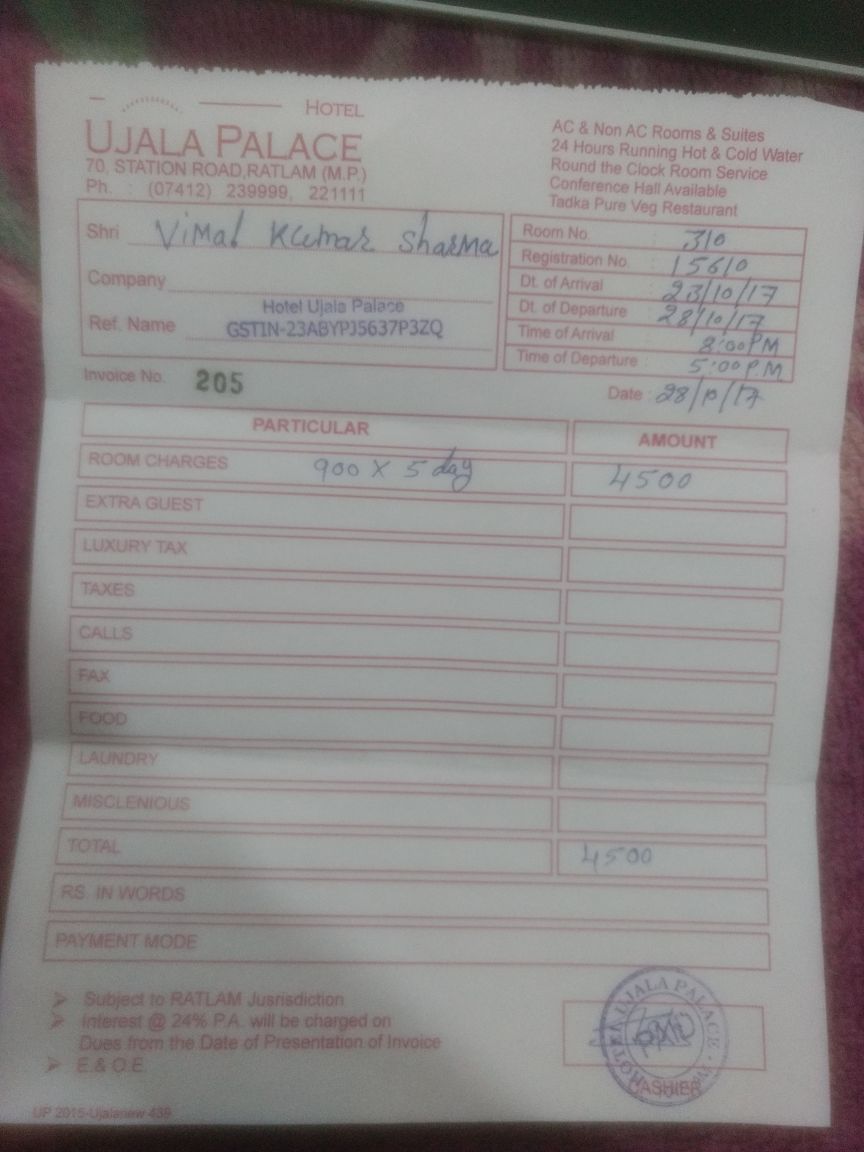 HOTEL
UJALA PALACE
70, STATION ROAD,RATLAM (M.P.)
Ph. : (07412) 239999, 221111
AC & Non AC Rooms & Suites
24 Hours Running Hot & Cold Water
Round the Clock Room Service
Conference Hall Available
Tadka Pure Veg Restaurant
Shri Vimal Kumar Sharma
Company
Hotel Ujala Palace
Ref. Name GSTIN-23ABYPJ5637P3ZQ
Room No. : 310
Registration No. : 15610
Dt. of Arrival : 23/10/17
Dt. of Departure : 28/10/17
Time of Arrival : 8:00PM
Time of Departure : 5:00P.M.
Invoice No. 205
Date : 28/10/17
PARTICULAR AMOUNT
ROOM CHARGES 900 X 5 day 4500
EXTRA GUEST
LUXURY TAX
TAXES
CALLS
FAX
FOOD
LAUNDRY
MISCLENIOUS
TOTAL 4500
RS. IN WORDS
PAYMENT MODE
➢ Subject to RATLAM Jusrisdiction
➢ Interest @ 24% P.A. will be charged on
Dues from the Date of Presentation of Invoice
➢ E.& O.E.
HOTEL UJALA PALACE
CASHIER
UP 2015-Ujalanew 439